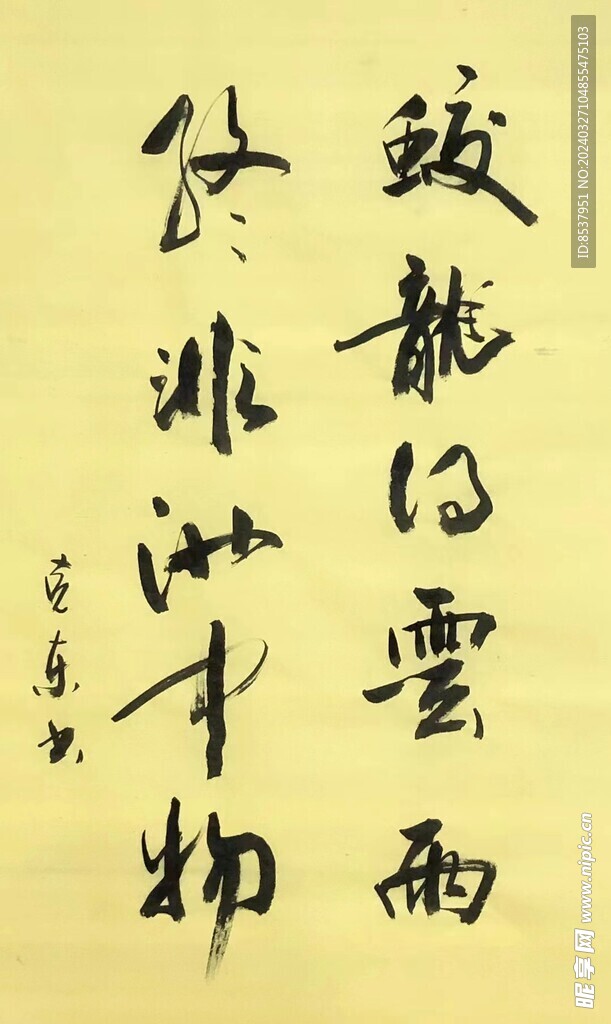 蛟龍得雲雨
終非池中物
克东书
ID:8537951 NO:20240327104855475103
昵享网 www.nipic.cn